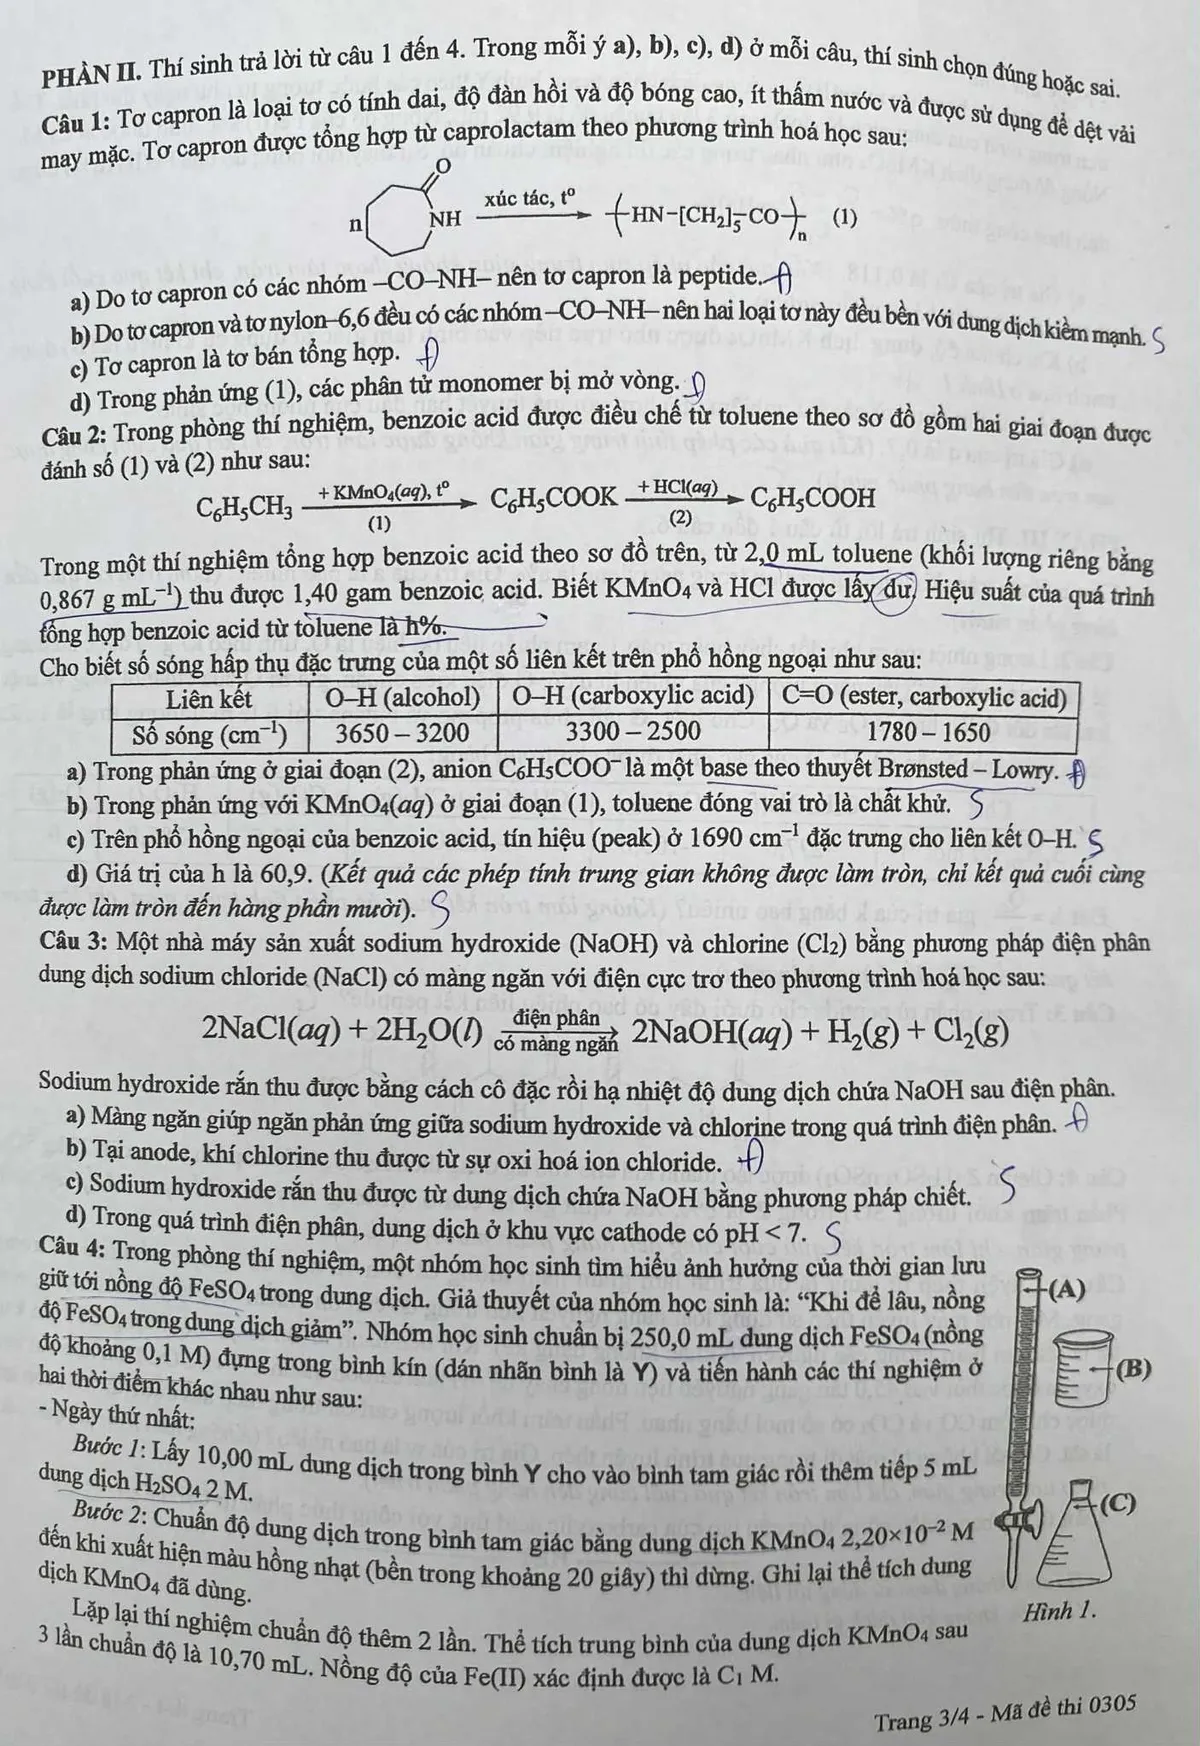 PHẦN II. Thí sinh trả lời từ câu 1 đến 4. Trong mỗi ý a), b), c), d) ở mỗi câu, thí sinh chọn đúng hoặc sai.
Câu 1: Tơ capron là loại tơ có tính dai, độ đàn hồi và độ bóng cao, ít thấm nước và được sử dụng để dệt vải
may mặc. Tơ capron được tổng hợp từ caprolactam theo phương trình hoá học sau:
n O NH xúc tác, t° –(HN–[CH₂]₅–CO–)ₙ (1)
a) Do tơ capron có các nhóm –CO–NH– nên tơ capron là peptide. Đ
b) Do tơ capron và tơ nylon–6,6 đều có các nhóm –CO–NH– nên hai loại tơ này đều bền với dung dịch kiềm mạnh. S
c) Tơ capron là tơ bán tổng hợp. Đ
d) Trong phản ứng (1), các phân tử monomer bị mở vòng. Đ
Câu 2: Trong phòng thí nghiệm, benzoic acid được điều chế từ toluene theo sơ đồ gồm hai giai đoạn được
đánh số (1) và (2) như sau:
C₆H₅CH₃ + KMnO₄(aq), t° (1) → C₆H₅COOK + HCl(aq) (2) → C₆H₅COOH
Trong một thí nghiệm tổng hợp benzoic acid theo sơ đồ trên, từ 2,0 mL toluene (khối lượng riêng bằng
0,867 g mL⁻¹) thu được 1,40 gam benzoic acid. Biết KMnO₄ và HCl được lấy dư. Hiệu suất của quá trình
tổng hợp benzoic acid từ toluene là h%.
Cho biết số sóng hấp thụ đặc trưng của một số liên kết trên phổ hồng ngoại như sau:
Liên kết O–H (alcohol) O–H (carboxylic acid) C=O (ester, carboxylic acid)
Số sóng (cm⁻¹) 3650 – 3200 3300 – 2500 1780 – 1650
a) Trong phản ứng ở giai đoạn (2), anion C₆H₅COO⁻ là một base theo thuyết Brønsted – Lowry. Đ
b) Trong phản ứng với KMnO₄(aq) ở giai đoạn (1), toluene đóng vai trò là chất khử. S
c) Trên phổ hồng ngoại của benzoic acid, tín hiệu (peak) ở 1690 cm⁻¹ đặc trưng cho liên kết O–H. S
d) Giá trị của h là 60,9. (Kết quả các phép tính trung gian không được làm tròn, chỉ kết quả cuối cùng
được làm tròn đến hàng phần mười). S
Câu 3: Một nhà máy sản xuất sodium hydroxide (NaOH) và chlorine (Cl₂) bằng phương pháp điện phân
dung dịch sodium chloride (NaCl) có màng ngăn với điện cực trơ theo phương trình hoá học sau:
2NaCl(aq) + 2H₂O(l) điện phân có màng ngăn → 2NaOH(aq) + H₂(g) + Cl₂(g)
Sodium hydroxide rắn thu được bằng cách cô đặc rồi hạ nhiệt độ dung dịch chứa NaOH sau điện phân.
a) Màng ngăn giúp ngăn phản ứng giữa sodium hydroxide và chlorine trong quá trình điện phân. Đ
b) Tại anode, khí chlorine thu được từ sự oxi hoá ion chloride. Đ
c) Sodium hydroxide rắn thu được từ dung dịch chứa NaOH bằng phương pháp chiết. S
d) Trong quá trình điện phân, dung dịch ở khu vực cathode có pH < 7. S
Câu 4: Trong phòng thí nghiệm, một nhóm học sinh tìm hiểu ảnh hưởng của thời gian lưu
giữ tới nồng độ FeSO₄ trong dung dịch. Giả thuyết của nhóm học sinh là: “Khi để lâu, nồng
độ FeSO₄ trong dung dịch giảm”. Nhóm học sinh chuẩn bị 250,0 mL dung dịch FeSO₄ (nồng
độ khoảng 0,1 M) đựng trong bình kín (dán nhãn bình là Y) và tiến hành các thí nghiệm ở
hai thời điểm khác nhau như sau:
- Ngày thứ nhất:
Bước 1: Lấy 10,00 mL dung dịch trong bình Y cho vào bình tam giác rồi thêm tiếp 5 mL
dung dịch H₂SO₄ 2 M.
Bước 2: Chuẩn độ dung dịch trong bình tam giác bằng dung dịch KMnO₄ 2,20×10⁻² M
đến khi xuất hiện màu hồng nhạt (bền trong khoảng 20 giây) thì dừng. Ghi lại thể tích dung
dịch KMnO₄ đã dùng.
Lặp lại thí nghiệm chuẩn độ thêm 2 lần. Thể tích trung bình của dung dịch KMnO₄ sau
3 lần chuẩn độ là 10,70 mL. Nồng độ của Fe(II) xác định được là C₁ M.
(A)
(B)
(C)
Hình 1.
Trang 3/4 - Mã đề thi 0305